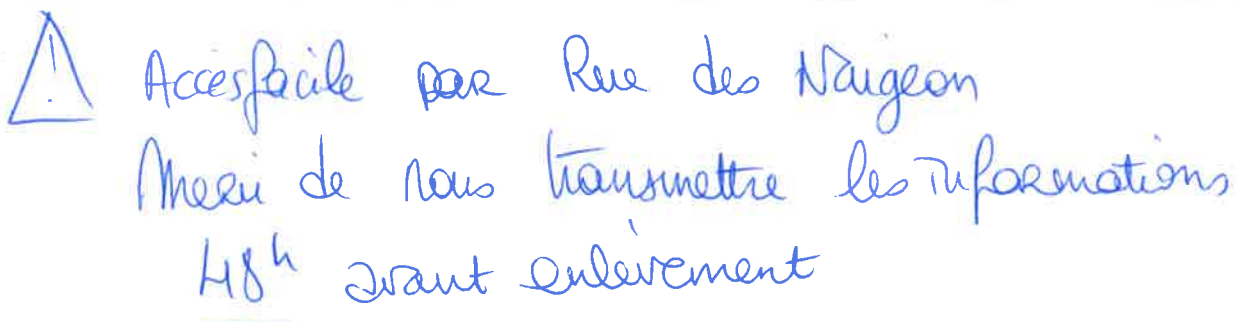 Acces facile par Rue des Naigeon
Merci de nous transmettre les informations
48h avant enlèvement